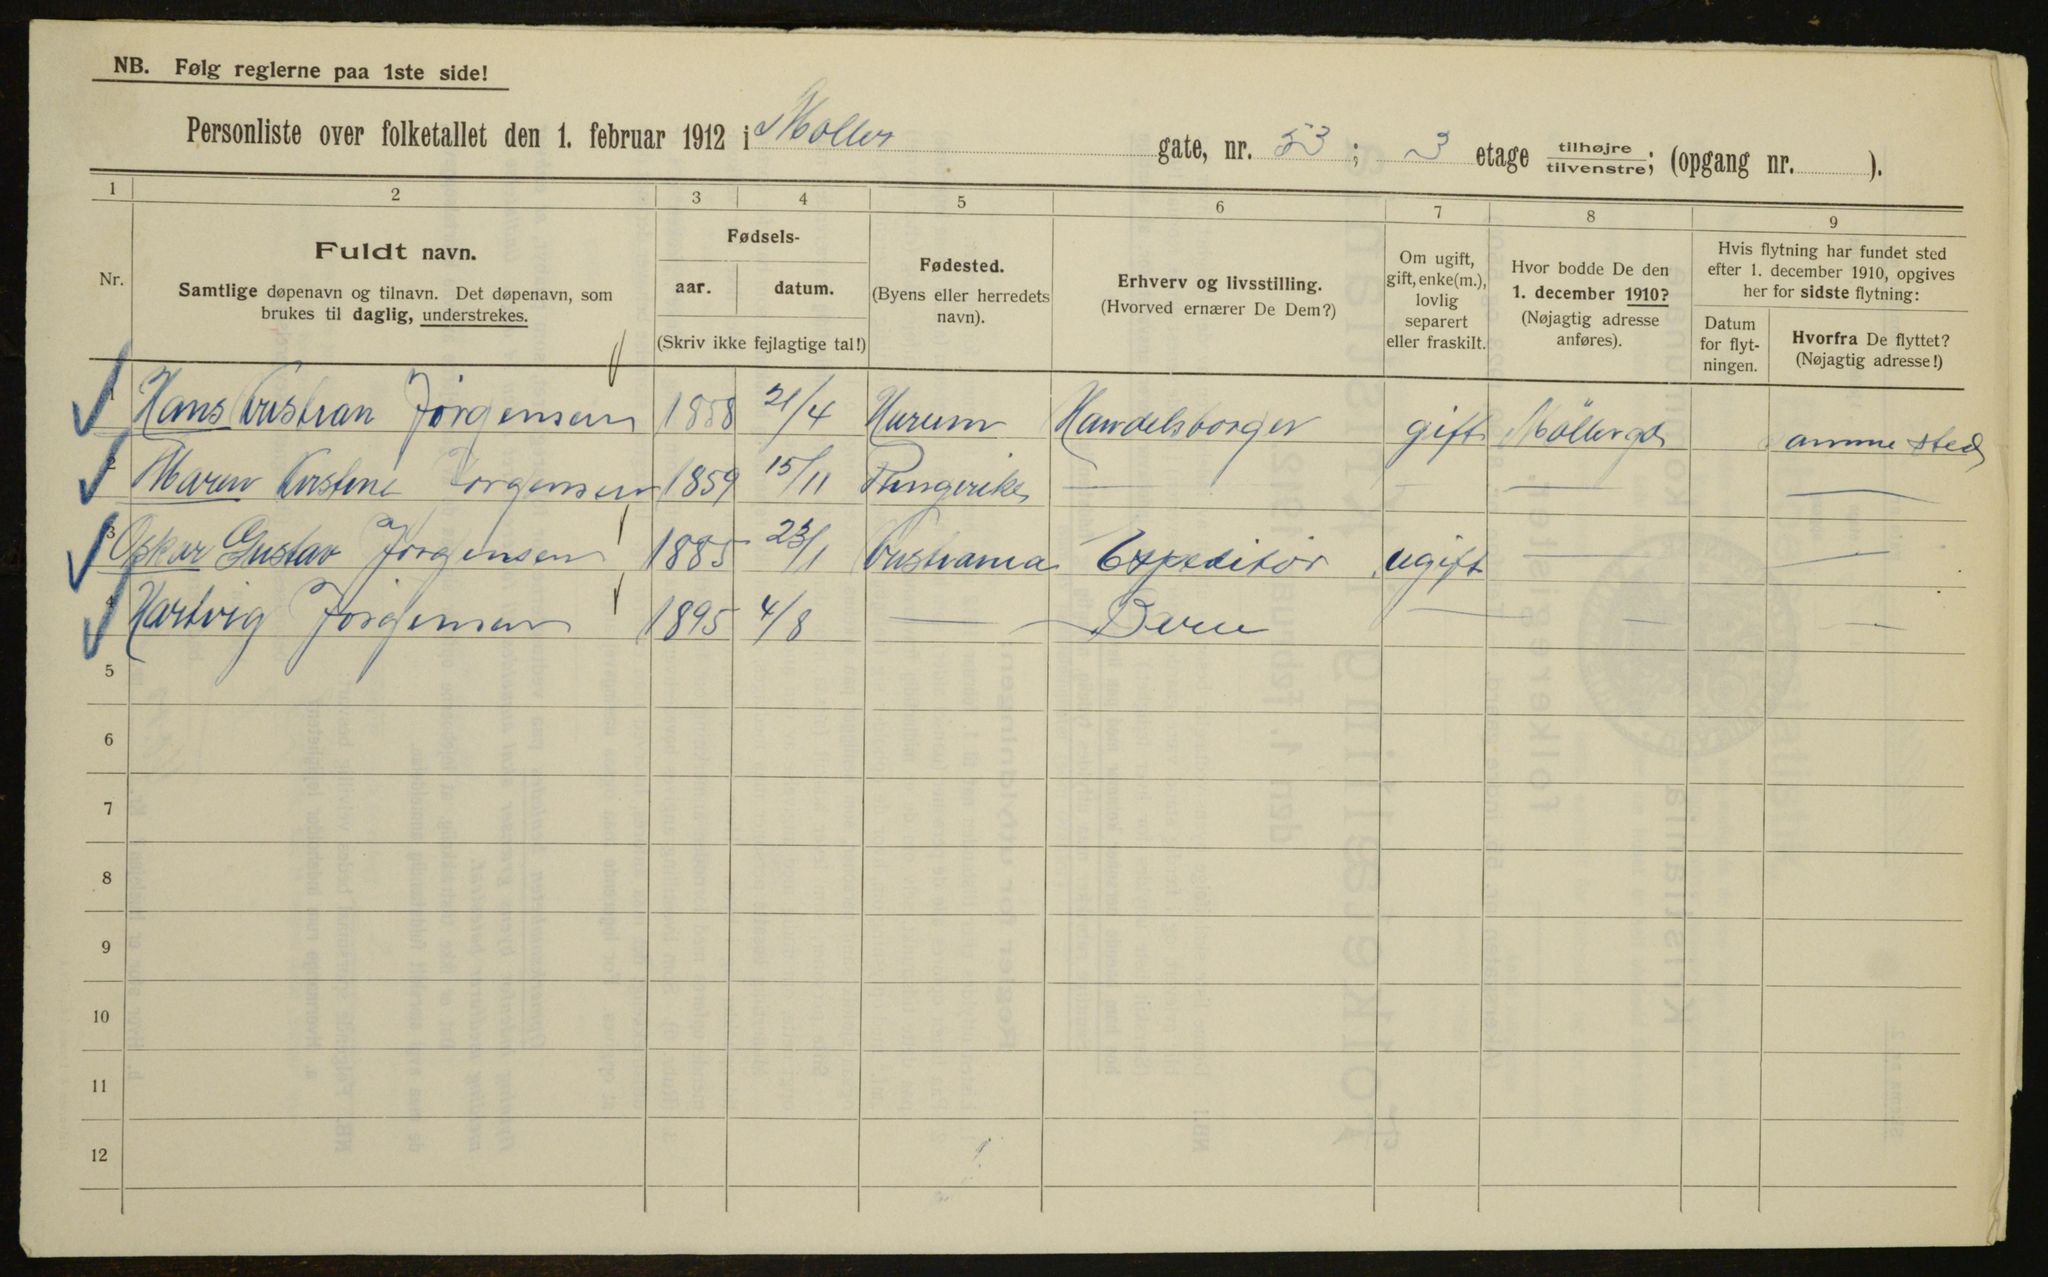 NB. Følg reglerne paa 1ste side!
Personliste over folketallet den 1. februar 1912 i Møller gate, nr. 53; 3 etage tilhøjre/tilvenstre; (opgang nr. ).
1 2 3 4 5 6 7 8 9
Nr.
Fuldt navn.
Samtlige døpenavn og tilnavn. Det døpenavn, som
brukes til daglig, understrekes.
Fødsels-
aar. datum.
(Skriv ikke fejlagtige tal!)
Fødested.
(Byens eller herredets
navn).
Erhverv og livsstilling.
(Hvorved ernærer De Dem?)
Om ugift,
gift, enke(m.),
lovlig
separert
eller fraskilt.
Hvor bodde De den
1. december 1910?
(Nøjagtig adresse
anføres).
Hvis flytning har fundet sted
efter 1. december 1910, opgives
her for sidste flytning:
Datum
for flyt-
ningen.
Hvorfra De flyttet?
(Nøjagtig adresse!)
1 Hans Cristian Jørgensen 1858 21/4 Hurum Handelsborger gift Möllergd Samme sted
2 Maren Kirstine Jorgensen 1859 15/11 Ringerike — — — —
3 Oskar Gustav Jørgensen 1885 23/1 Cristiania Expeditør ugift — —
4 Hartvig Jörgensen 1895 4/8 — — — —
5
6
7
8
9
10
11
12